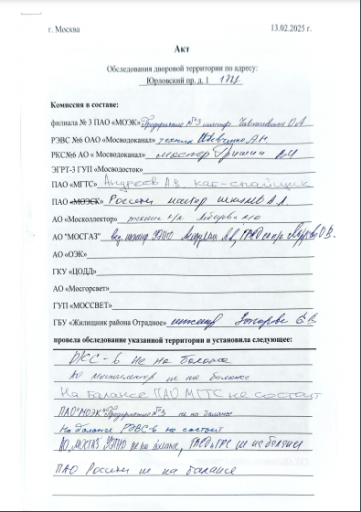 г. Москва 13.02.2025 г.
Акт
Обследования дворовой территории по адресу:
Юрловский пр. д. 1
Комиссия в составе:
филиала № 3 ПАО «МОЭК» Предприятие №3 мастер
РЭВС №6 ОАО «Мосводоканал» техник
РКС№6 АО « Мосводоканал» мастер Гришин
ЭГРТ-3 ГУП «Мосводосток»
ПАО «МГТС» Андреев А.В. каб-спайщик
ПАО «МОЭСК» Россети мастер
АО «Москоллектор» техник
АО "МОСГАЗ"
АО «ОЭК»
ГКУ «ЦОДД»
АО «Мосгорсвет»
ГУП «МОССВЕТ»
ГБУ «Жилищник района Отрадное» инженер
провела обследование указанной территории и установила следующее:
РКС-6 не на балансе
АО москоллектор не на балансе
На балансе ПАО МГТС не состоит
ПАО "МОЭК" Предприятие №3 не на балансе
На балансе РЭВС-6 не состоит
АО "МОСГАЗ" не на балансе,
ПАО Россети не на балансе